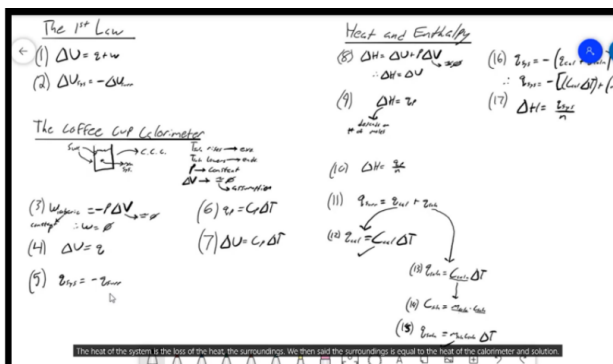 The 1st Law
(1) ΔU = q+w
(2) ΔUsys = -ΔUsurr
The Coffee Cup Calorimeter
Surr
C.C.C.
Sys.
P → constant
ΔV →
assumption
(3) = -PΔV
∴ w = ø
(4) ΔU = q
(5) qsys = -qsurr
(6) qp = CpΔT
(7) ΔU = CpΔT
Heat and Enthalpy
(8) ΔH = ΔU+PΔV
∴ ΔH = ΔU
(9) ΔH = qp
depends on
# of moles
(10) ΔH =
(11) qsurr = qcal + qsoln
(12) qcal = Ccal ΔT
(13) qsoln = Csoln ΔT
(14) Csoln =
(15) qsoln = ΔT
(16) qsys = -(qcal + qsoln)
∴ qsys = -[(CcalΔT) + (
(17) ΔH = qsys/n
The heat of the system is the loss of the heat, the surroundings. We then said the surroundings is equal to the heat of the calorimeter and solution.